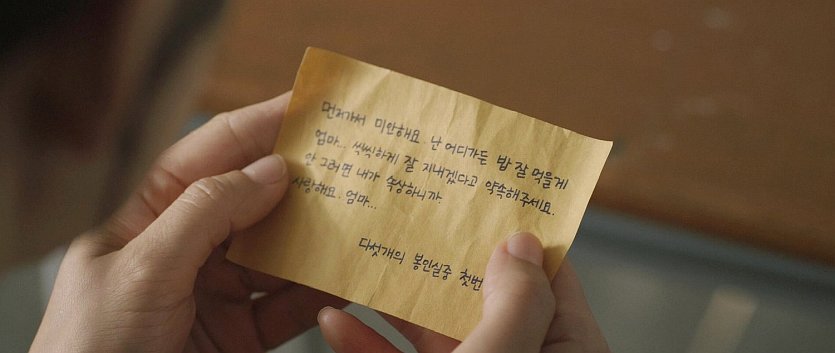 먼저가서 미안해요. 난 어디가든 밥 잘 먹을게
엄마... 씩씩하게 잘 지내겠다고 약속해주세요.
안 그러면 내가 속상하니까.
사랑해요. 엄마...
다섯개의 봉인실중 첫번